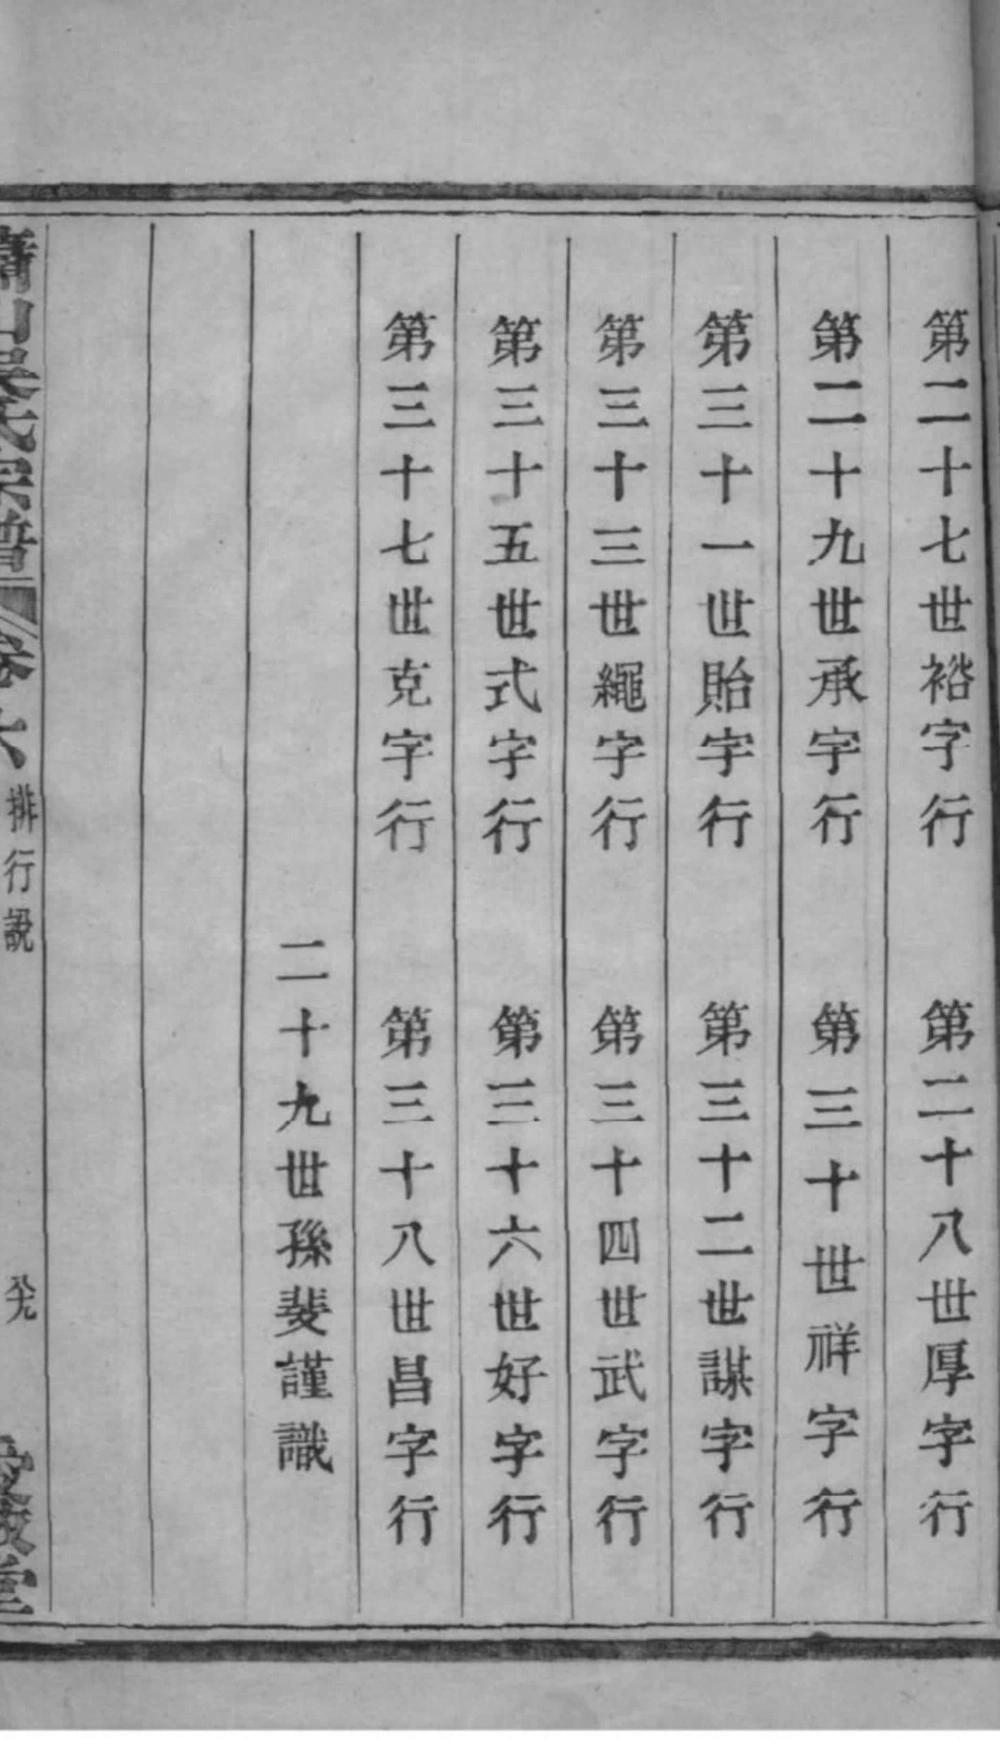 第二十七世裕字行　第二十八世厚字行
第二十九世承字行　第三十世祥字行
第三十一世貽字行　第三十二世謀字行
第三十三世繩字行　第三十四世武字行
第三十五世式字行　第三十六世好字行
第三十七世克字行　第三十八世昌字行
二十九世孫斐謹識
蕭山吳氏宗譜　卷六　排行說
堂